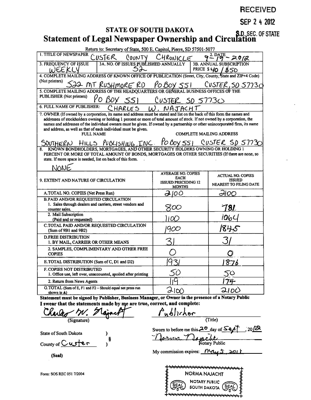 RECEIVED
SEP 24 2012
S.D. SEC. OF STATE
STATE OF SOUTH DAKOTA
Statement of Legal Newspaper Ownership and Circulation
Return to: Secretary of State, 500 E. Capitol, Pierre, SD 57501-5077
1. TITLE OF NEWSPAPER CUSTER COUNTY CHRONICLE
2. DATE 9-19-2012
3. FREQUENCY OF ISSUE WEEKLY
3A. NO. OF ISSUES PUBLISHED ANNUALLY 52
3B. ANNUAL SUBSCRIPTION PRICE $40/$50
4. COMPLETE MAILING ADDRESS OF KNOWN OFFICE OF PUBLICATION (Street, City, County, State and ZIP+4 Code) (Not printers)
522 MT RUSHMORE RD PO BOX 551 CUSTER, SD 57730
5. COMPLETE MAILING ADDRESS OF THE HEADQUARTERS OR GENERAL BUSINESS OFFICES OF THE PUBLISHER (Not printer)
PO BOX 551 CUSTER SD 57730
6. FULL NAME OF PUBLISHER: CHARLES W. NAJACHT
7. OWNER (If owned by a corporation, its name and address must be stated and list on the back of this form the names and
addresses of stockholders owning or holding 1 percent or more of total amount of stock. If not owned by a corporation, the
names and addresses of the individual owners must be given. If owned by a partnership or other unincorporated firm, its name
and address, as well as that of each individual must be given.
FULL NAME COMPLETE MAILING ADDRESS
SOUTHERN HILLS PUBLISHING, INC. PO BOX 551 CUSTER SD 57730
8. KNOWN BONDHOLDERS, MORTGAGEES, AND OTHER SECURITY HOLDERS OWNING OR HOLDING 1
PERCENT OR MORE OF TOTAL AMOUNT OF BONDS, MORTGAGES OR OTHER SECURITIES (If there are none, so
state. If more space is needed, list on back of this form.
NONE
9. EXTENT AND NATURE OF CIRCULATION
AVERAGE NO. COPIES EACH ISSUED PRECEDING 12 MONTHS
ACTUAL NO. COPIES ISSUED NEAREST TO FILING DATE
A. TOTAL NO. COPIES (Net Press Run) 2100 2100
B. PAID AND/OR REQUESTED CIRCULATION
1. Sales through dealers and carriers, street vendors and counter sales. 800 781
2. Mail Subscription (Paid and or requested) 1100 1064
C. TOTAL PAID AND/OR REQUESTED CIRCULATION (Sum of 9B1 and 9B2) 1900 1845
D. FREE DISTRIBUTION
1. BY MAIL, CARRIER OR OTHER MEANS 31 31
2. SAMPLES, COMPLIMENTARY AND OTHER FREE COPIES 0 0
E. TOTAL DISTRIBUTION (Sum of C, D1 and D2) 1931 1876
F. COPIES NOT DISTRIBUTED
1. Office use, left over, unaccounted, spoiled after printing 50 50
2. Return from News Agents 119 174
G. TOTAL (Sum of E, F1 and F2 – Should equal net press run shown in A) 2100 2100
Statement must be signed by Publisher, Business Manager, or Owner in the presence of a Notary Public
I swear that the statements made by me are true, correct, and complete:
Charles W. Najacht Publisher
(Signature) (Title)
State of South Dakota )
County of Custer )
(Seal)
Sworn to before me this 20 day of Sept, 2012
Norma Najacht
Notary Public
My commission expires:
Form: SOS REC 051 7/2004
NORMA NAJACHT
NOTARY PUBLIC
SOUTH DAKOTA
SEAL SEAL